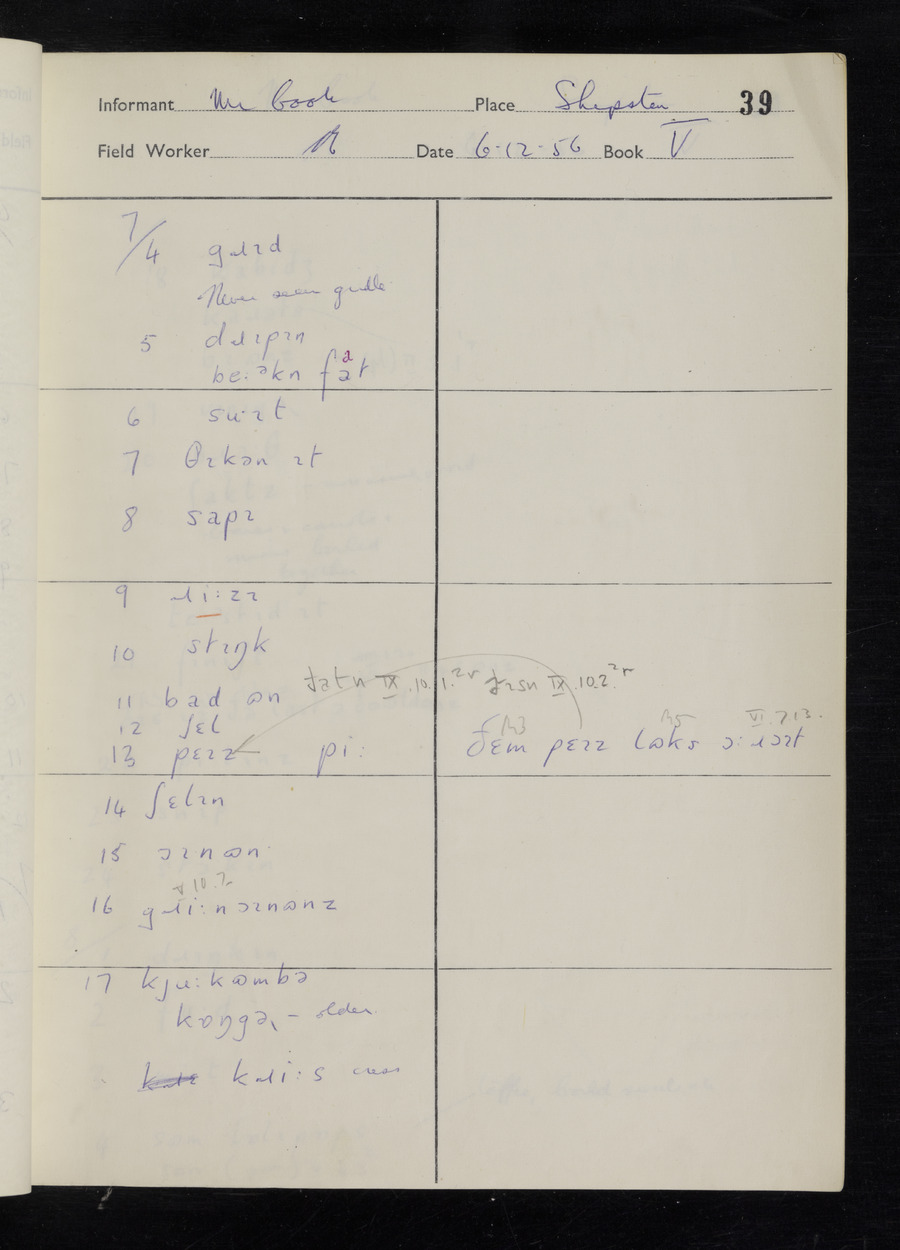 Informant Mr Cook Place Shepsten 39
Field Worker Date 6-12-56 Book V
7/4 gɹɪd
Never seen griddle
5 dɹɪpɪn
be:əkn fat
6 su:ɪt
7 θɪkən ɪt
8 sapɪ
9 ɹi:zɪ
10 stɪŋk
11 bad ən IX.10.1.2r IX.10.2.2r
12 ʃel
13 pɛɪz pi: ðɛm pɛɪz lɷks ɔ: ɹəɪt
M3 M5 VI.7.13.
14 ʃɛlɪn
15 ɔɪnɷn
V 10.7
16 gɹi:n ɔɪnɷnz
17 kju:kɷmbə
kɒŋgə – older
kɹi:s cress